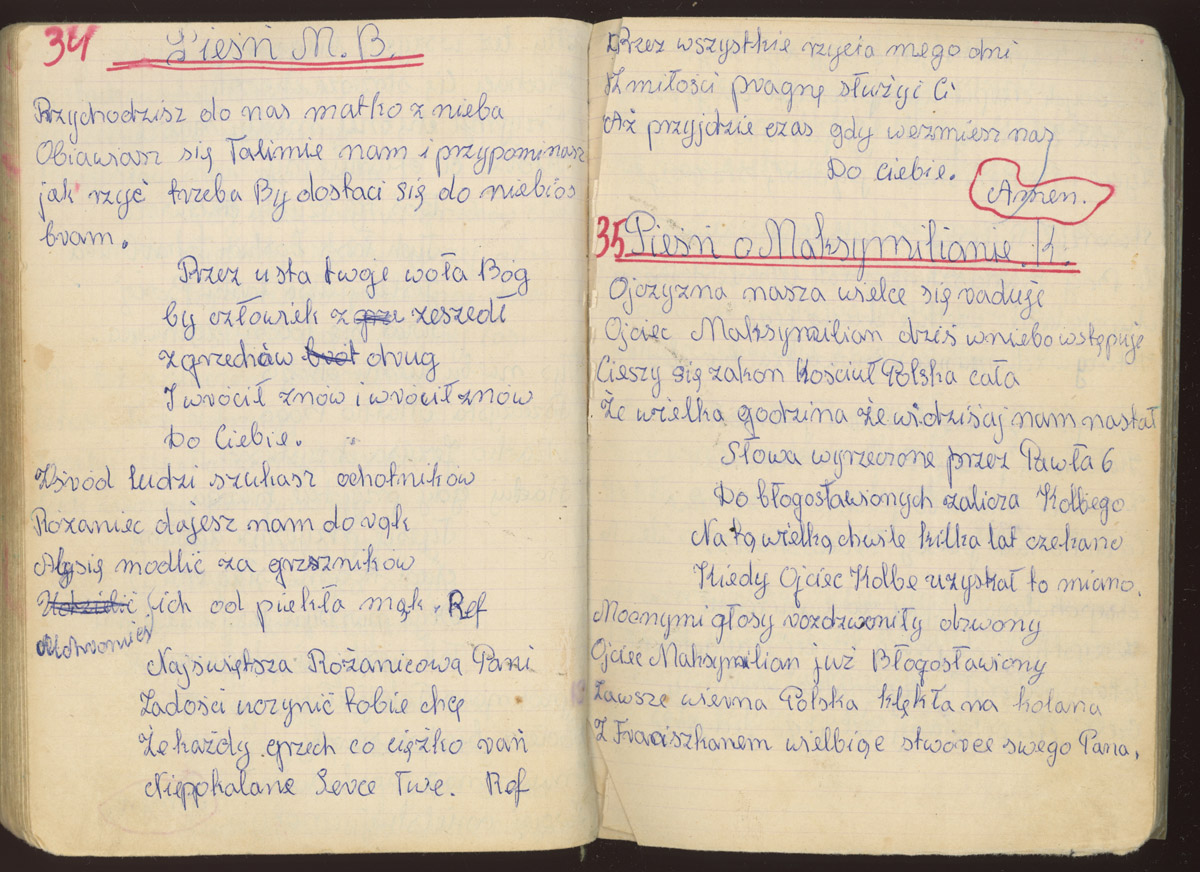 34 Pieśń M. B.
Przychodzisz do nas matko z nieba
Obiawiasz się Fatimie nam i przypominasz
jak rzyć trzeba By dostaci się do niebios
bram.
Przez usta twoje woła Bóg
by człowiek z grze zeszedł
z grzechów brót dróg
I wrócił znów i wrócił znów
Do Ciebie.
Wśród ludzi szukasz ochotników
Różaniec dajesz nam do rąk
Aby się modlić za grzszników
ich od piekła mąk. Ref
Najświętsza Rożanicową Pani
Zadości uczynić tobie chcę
Że każdy grzech co ciężko rań
Niepokalane Serce Twe. Ref
Przez wszystkie rzycia mego dni
Z miłości pragnę służyć Ci
Aż przyjdzie czas gdy weźmiesz nas
Do Ciebie.
Amen.
35 Pieśń o Maksymilianie. K.
Ojczyzna nasza wielce się raduje
Ojciec Maksymilian dziś wniebo wstępuje
Cieszy się zakon Kościuł Polska cała
Że wielka godzina że w dzisiaj nam nastał
Słowa wyrzeczone przez Pawła 6
Do błogosławionych zalicza Kolbego
Na tą wielką chwile kilka lat czekano
Kiedy Ojciec Kolbe uzyskał to miano.
Mocnymi głosy rozdzwoniły dzwony
Ojciec Maksymilian już Błogosławiony
Zawsze wierna Polska klękła na kolana
Z Franciszkanem wielbiąc stwórce swego Pana.